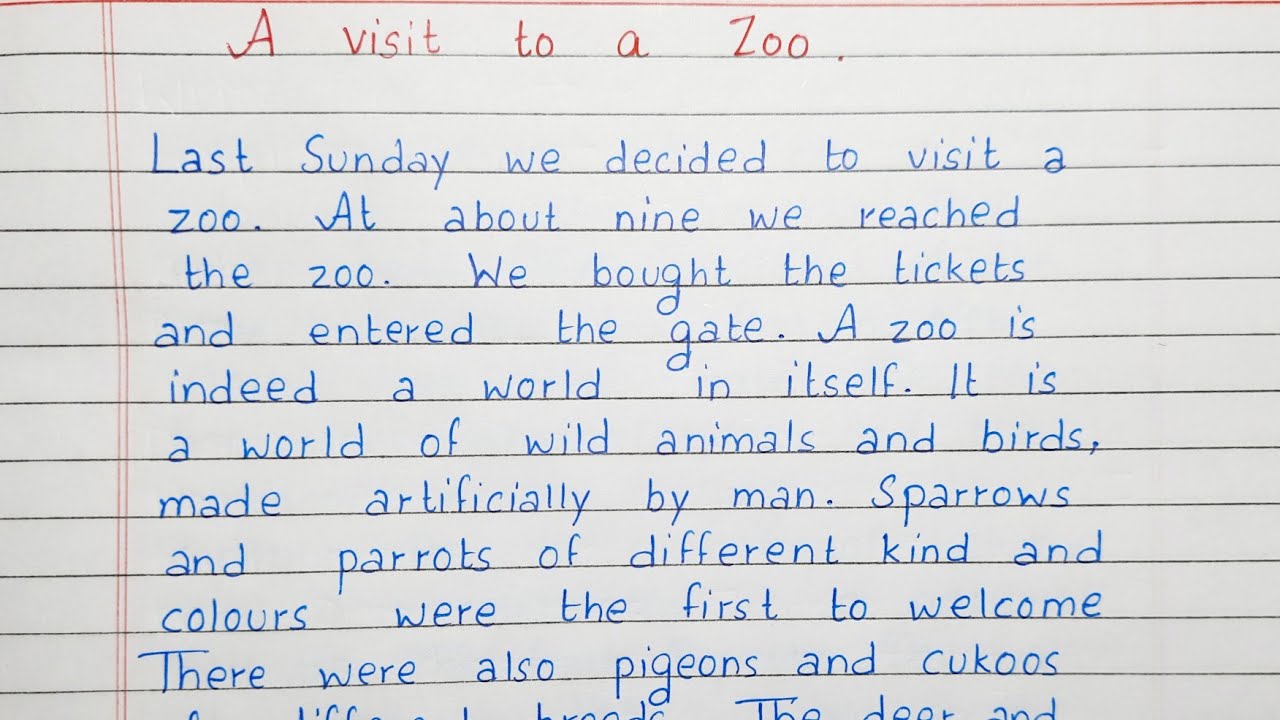 A visit to a Zoo.
Last Sunday we decided to visit a
zoo. At about nine we reached
the zoo. We bought the tickets
and entered the gate. A zoo is
indeed a world in itself. It is
a world of wild animals and birds,
made artificially by man. Sparrows
and parrots of different kind and
colours were the first to welcome
There were also pigeons and cukoos
different breeds. The deer and